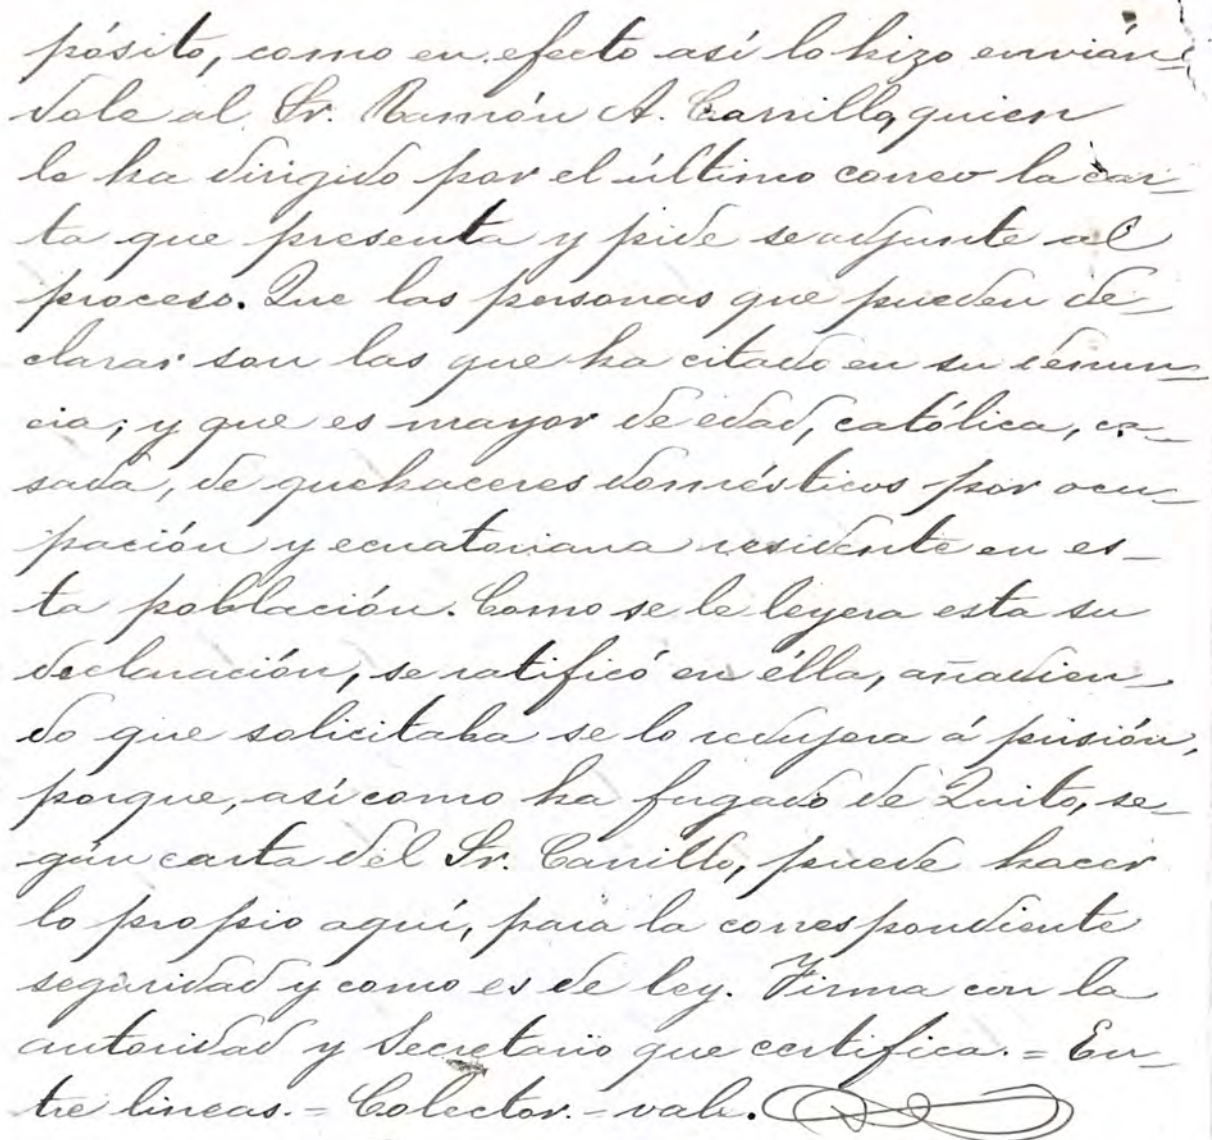 pósito, como en efecto así lo hizo envián-
dole al Sr. Ramón A. Carrillo, quien
le ha dirigido por el último correo la car-
ta que presenta y pide se adjunte al
proceso. Que las personas que pueden de-
clarar son las que ha citado en su denun-
cia; y que es mayor de edad, católica, ca-
sada, de quehaceres domésticos por ocu-
pación y ecuatoriana residente en es-
ta población. Como se le leyera esta su
declaración, se ratificó en élla, añadien-
do que solicitaba se lo redujera á prisión,
porque, así como ha fugado de Quito, se-
gún carta del Sr. Carrillo, puede hacer
lo propio aquí, para la correspondiente
seguridad y como es de ley. Firma con la
autoridad y Secretario que certifica. = En-
tre lineas. = Colector. - vale.